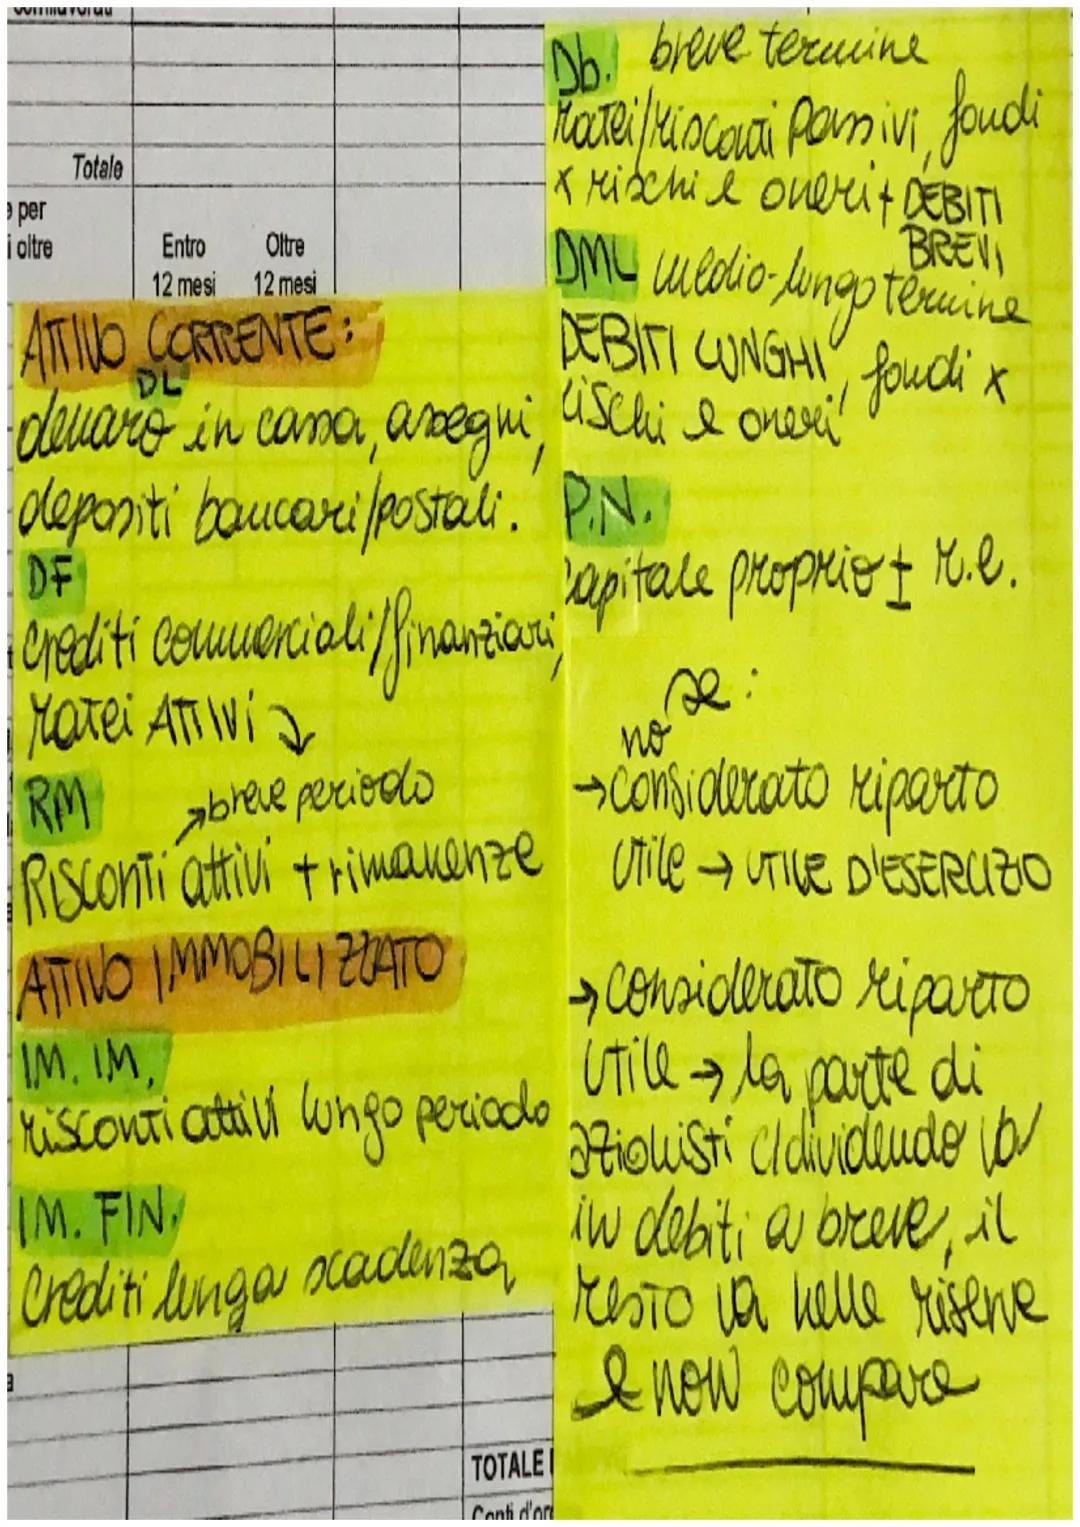 Totale
per
oltre
Entro
12 mesi
Oltre
12 mesi
ATTIVO CORRENTE:
DL
denaro in cassa, assegni,
depositi bancari/postali.
DF
crediti commerciali/finanziari,
ratei ATTIVI
RM
→breve periodo
RISCONTI attivi + rimanenze
ATTIVO IMMOBILIZZATO
IM. IM.
risconti attivi lungo periodo
IM. FIN.
crediti lunga scadenza
TOTALE
Conti d'or
Db. breve termine
ratei/risconti passivi, fondi
x rischi e oneri + DEBITI
BREVI
DML medio-lungo termine
DEBITI LUNGHI, fondi x
rischi e oneri
P.N.
capitale proprio ± r.e.
se:
no
→considerato riparto
utile → UTILE D'ESERCIZIO
→ considerato riparto
utile → la parte di
azionisti c/dividendo va
in debiti a breve, il
resto va nelle riserve
e non compare